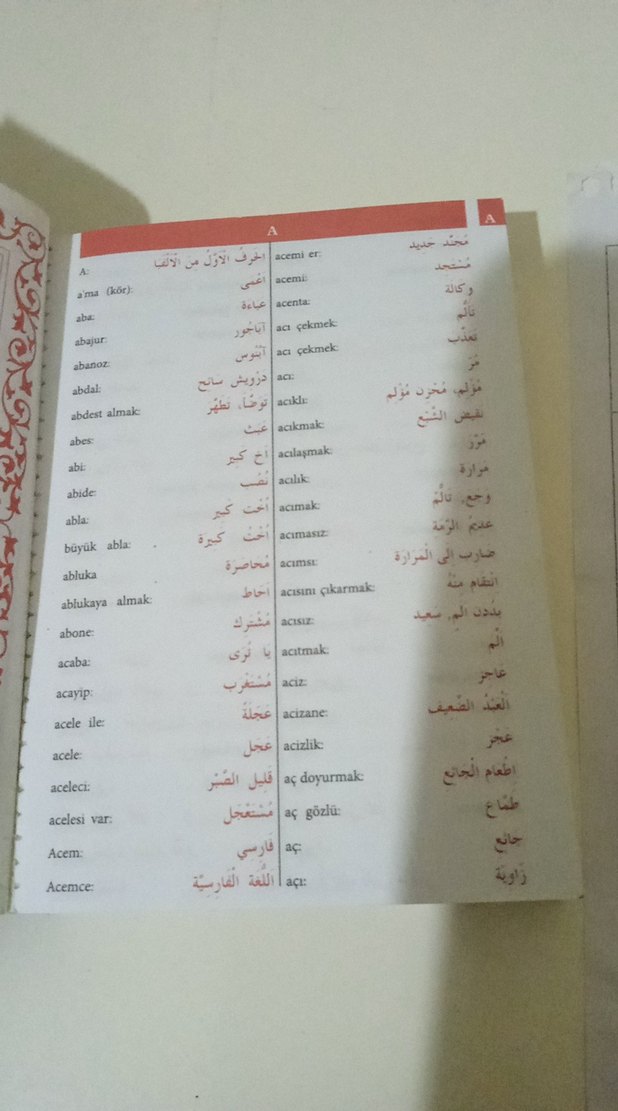 A
A
A: الحرفُ الْاَوَّلُ مِنَ الْاَلْفَبَا
a'ma (kör): اَعْمَى
aba: عباءة
abajur: آبَاجُور
abanoz: آبَنُوس
abdal: دَرْوِيش سائح
abdest almak: تَوَضَّأ، تَطَهَّر
abes: عَبَث
abi: اَخ كَبِير
abide: نُصُب
abla: اُخْت كَبِير
büyük abla: اُخْتُ كبيرة
abluka مُحَاصَرَة
ablukaya almak: احاط
abone: مُشْتَرِك
acaba: يا تُرَى
acayip: مُسْتَغْرِب
acele ile: عَجَلَةً
acele: عَجَل
aceleci: قَلِيل الصَّبْر
acelesi var: مُسْتَعْجَل
Acem: فَارِسي
Acemce: اللُّغَة الْفَارِسِيَّة
acemi er: مُجَنَّد جَدِيد
acemi: مُسْتَجد
acenta: وكالة
acı çekmek: تَأَلَّم
acı çekmek: تَعَذَّب
acı: مُرّ
acıklı: مُؤْلِم، مُحْزِن مُؤْلِم
acıkmak: نَقِيض الشَّبَع
acılaşmak: مَرَّرَ
acılık: مَرَارة
acımak: وَجَع، تَأَلَّمَ
acımasız: عَدِيمُ الرَّحْمَة
acımsı: ضارب اِلَى الْمَرَارَة
acısını çıkarmak: اَنْتَقَام مِنْهُ
acısız: بِدُون اَلَمٍ، سعيد
acıtmak: آلَم
aciz: عاجز
acizane: اَلْعَبْدُ الضَّعِيف
acizlik: عَجْز
aç doyurmak: اطْعَام الْجَائِع
aç gözlü: طَمَّاع
aç: جائع
açı: زَاوِيَة